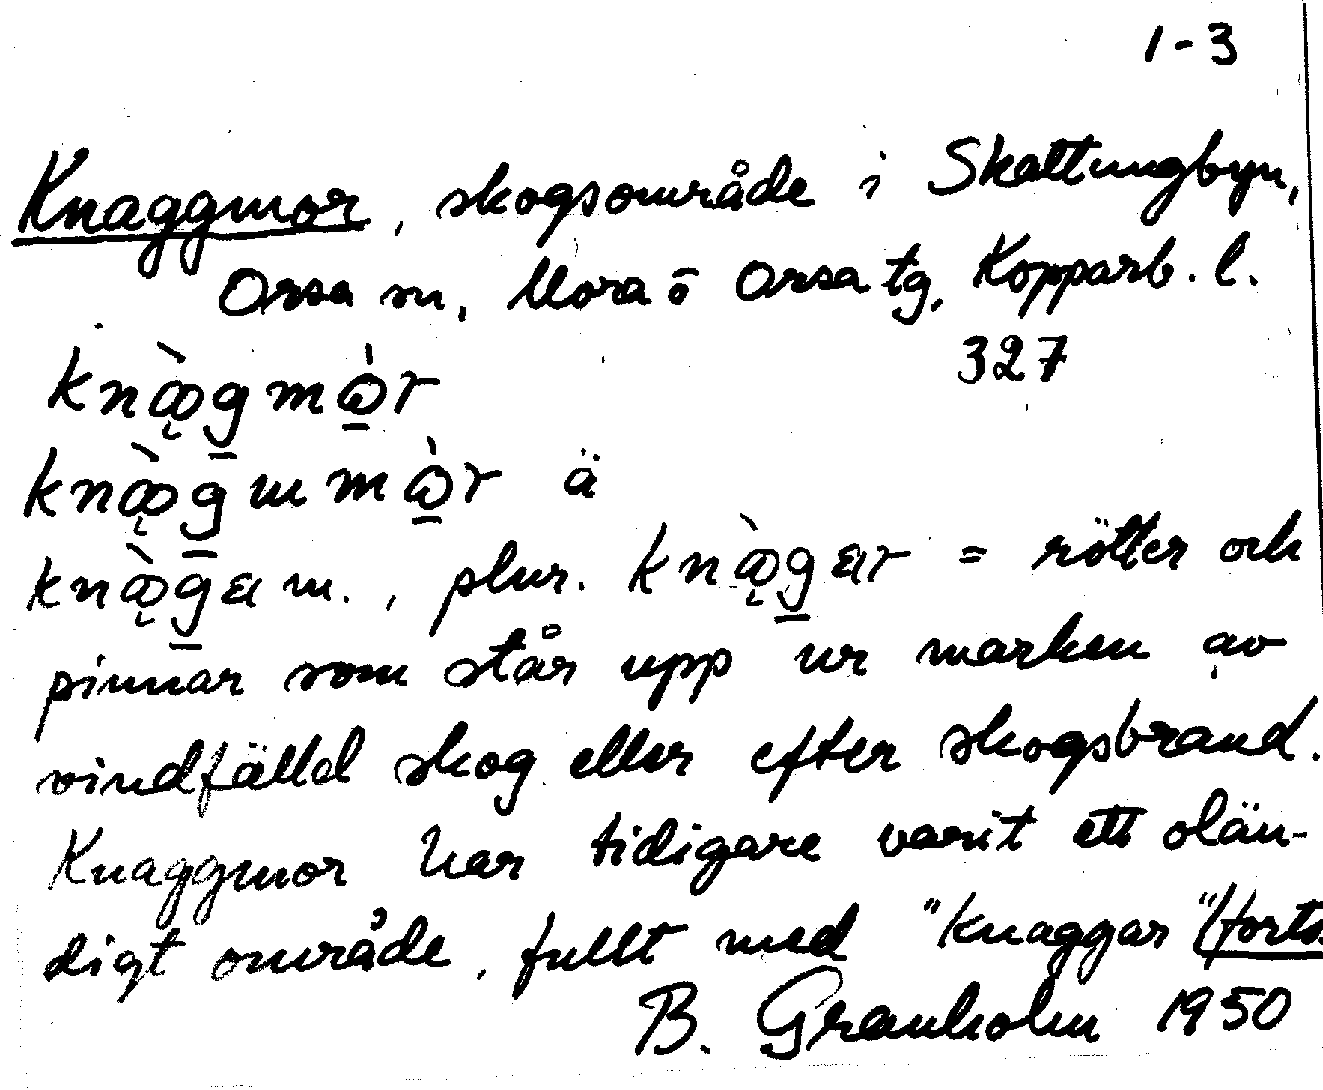 1-3
Knaggmor, skogsområde i Skattungbyn,
Orsa sn, Mora o Orsa tg, Kopparb. l.
327
knàgmòr
knàgmmòr ä
knàga m., plur. knàgar = rötter och
pinnar som står upp ur marken av
vindfälld skog eller efter skogsbrand.
Knaggmor har tidigare varit ett olän-
digt område, fullt med "knaggar" (forts.
B. Granholm 1950